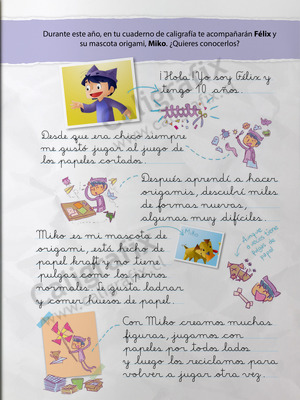 Durante este año, en tu cuaderno de caligrafía te acompañarán Félix y
su mascota origami, Miko. ¿Quieres conocerlos?
¡Hola! Yo soy Félix y
tengo 10 años.
Desde que era chico siempre
me gustó jugar al juego de
los papeles cortados.
Después aprendí a hacer
origamis, descubrí miles
de formas nuevas,
algunas muy difíciles.
Miko es mi mascota de
origami, está hecho de
papel kraft y no tiene
pulgas como los perros
normales. Le gusta ladrar
y comer huesos de papel.
Miko
Con Miko creamos muchas
figuras, jugamos con
papeles por todos lados
y luego los reciclamos para
volver a jugar otra vez.